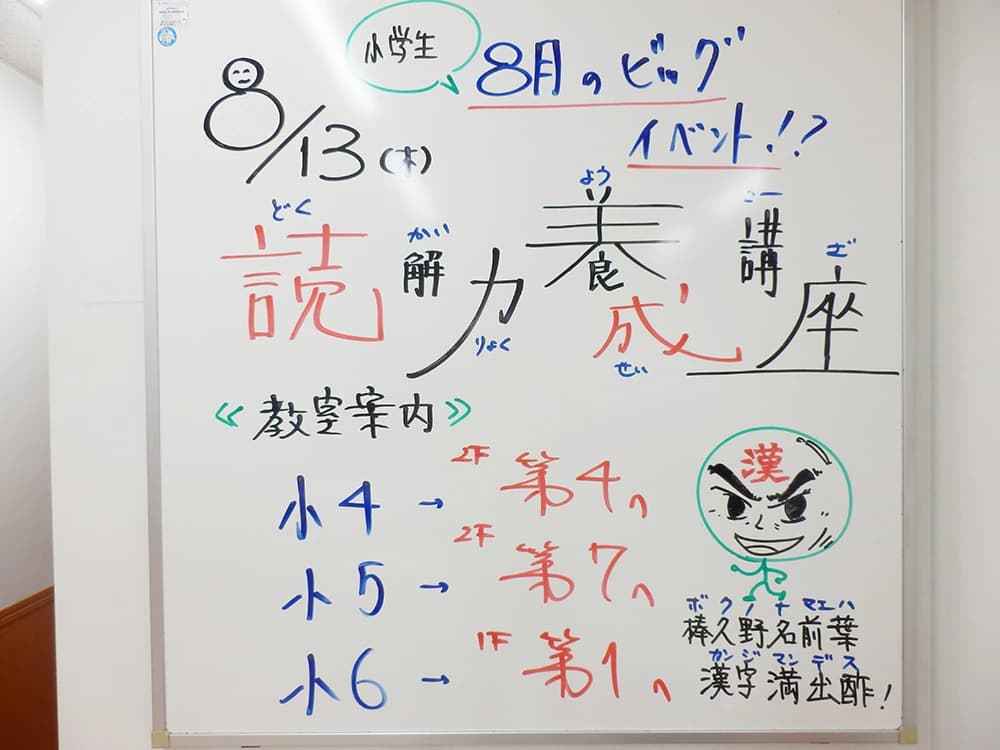 小学生
8月のビッグ
イベント!?
8/13(木)
どく かい りょく よう せい こー ざ
読解力養成講座
《教室案内》
小4→2F 第4へ
小5→2F 第7へ
小6→1F 第1へ
漢
ボクノナマエハ
棒久野名前葉
カンジマンデス
漢字満出酢!